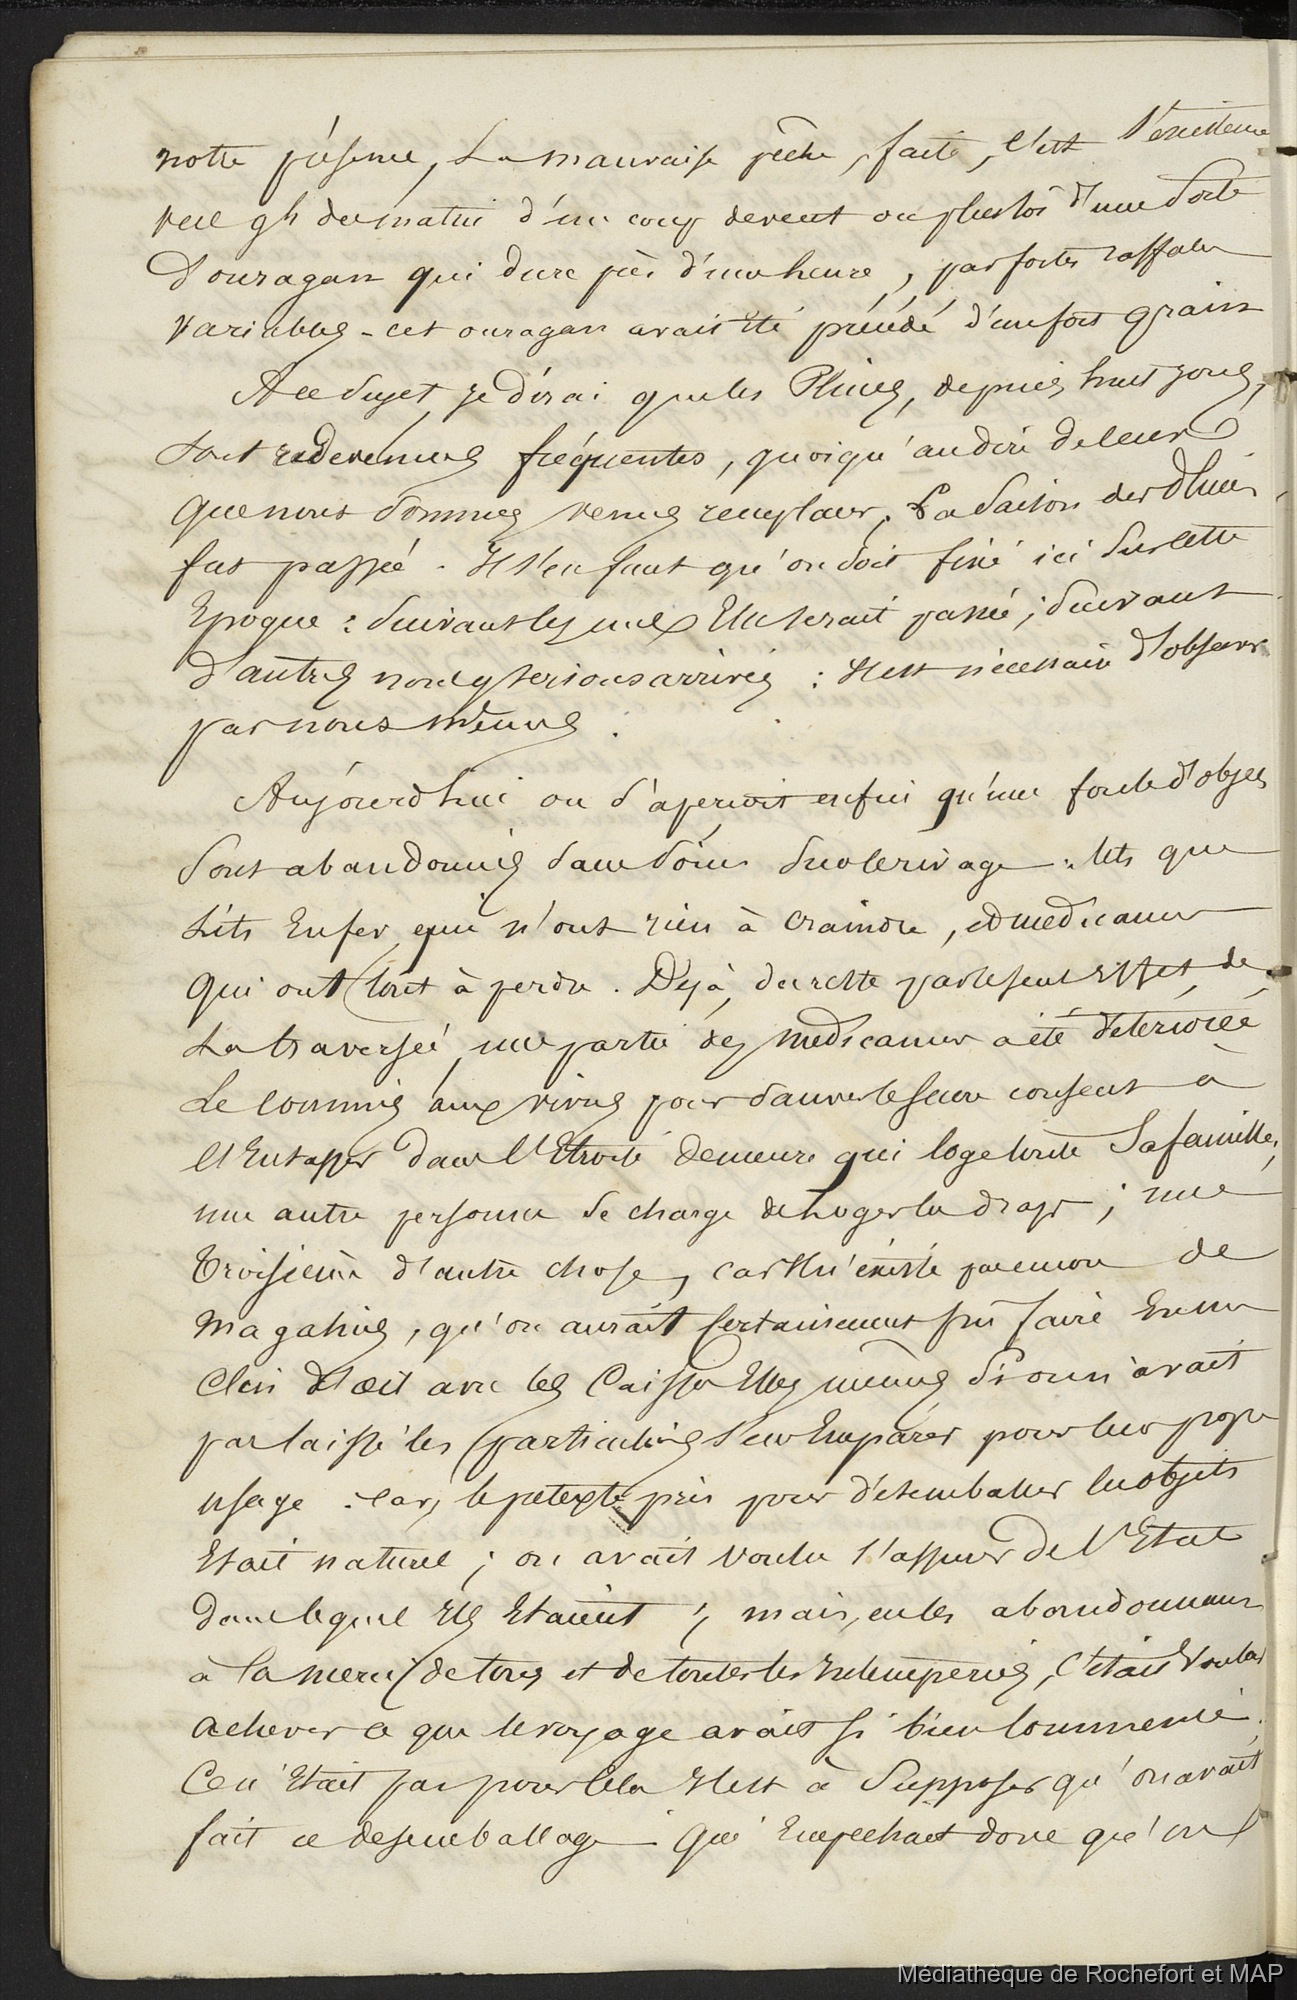 notre présence, La mauvaise pêche, faite, c'est
vers 9h du matin d'un coup de vent ou plustôt d'une sorte
d'ouragan qui dure près d'une heure, par fortes raffales
variables - cet ouragan avait été précédé d'un fort grain
A ce sujet, je dirai que les Pluies, depuis huit jours,
sont redevenues fréquentes, quoiqu'au dire de ceux
que nous sommes venus remplacer, La saison des Pluies
fut passée. Il s'en faut qu'on soit fixé ici sur cette
Epoque : suivant les uns Elle serait passée ; suivant
d'autres nous y serions arrivés : Il est nécessaire d'observer
par nous mêmes.
Aujourd'hui on s'aperçoit enfin qu'une foule d'objets
sont abandonnés sans soins sur le rivage : tels que
Lits En fer, qui n'ont rien à craindre, et médicamens
qui ont tout à perdre. Déjà, du reste par le seul effet, de
La traversée, une partie des médicamens a été détériorée
Le commis aux vivres pour sauver le sucre consent à
l'Entasser dans l'Etroite demeure qui loge toute sa famille,
une autre personne se charge de loger les draps ; une
troisième d'autre chose, car Il n'existe pas encore de
magasins, qu'on aurait certainement pû faire En un
clin d'œil avec les Caisses Elles mêmes si on n'avait
pas laissé les particuliers s'en Emparer pour leur propre
usage. Car, le prétexte pris pour désemballer les objets
Etait naturel ; on avait voulu s'assurer de l'Etat
dans lequel Ils Etaient ; mais, en les abandonnans
à la merci de tous et de toutes les Intempéries, c'était vouloir
achever ce que le voyage avait si bien commencé.
Ce n'Etait pas pour cela Il est à supposer qu'on avait
fait ce desemballage. Qui Empechait donc qu'on
Médiathèque de Rochefort et MAP